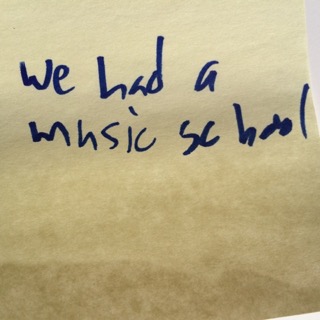 we had a
music school